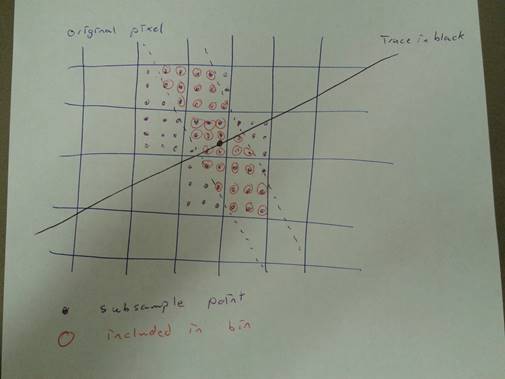 original pixel
Trace in black
subsample point
included in bin